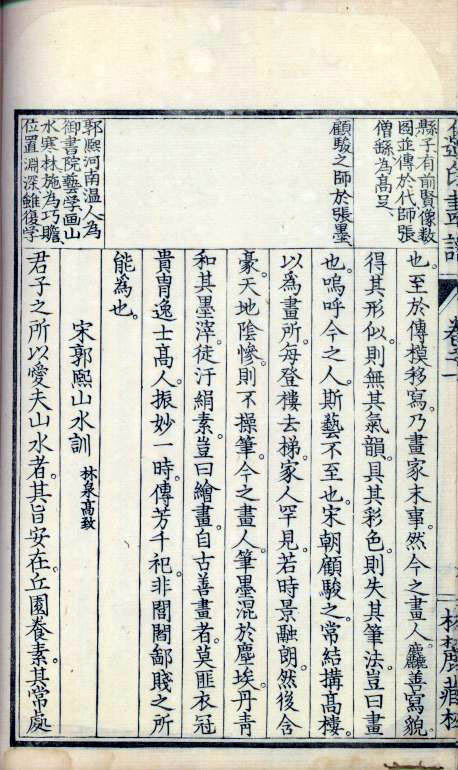 卷之一
縣子有前賢像數
國並傳於代師張
僧繇為高足、
顧駿之師於張墨、
郭熙河南温人為
御書院藝学画山
水寒林施為巧贍、
位置淵深雖復学
也。至於傳模移寫。乃畫家末事。然今之畫人。麤善寫貌。
得其形似。則無其氣韻。具其彩色。則失其筆法。豈曰畫
也。嗚呼今之人。斯藝不至也。宋朝顧駿之。常結搆高樓。
以為畫所。每登樓去梯。家人罕見。若時景融朗。然後含
豪。天地陰慘。則不操筆。今之畫人。筆墨混於塵埃。丹青
和其墨滓。徒汙絹素。豈曰繪畫。自古善畫者。莫匪衣冠
貴冑逸士高人。振妙一時。傳芳千祀。非閭閻鄙賤之所
能為也。
宋郭熙山水訓 林泉高致
君子之所以愛夫山水者。其旨安在。丘園養素。其常處